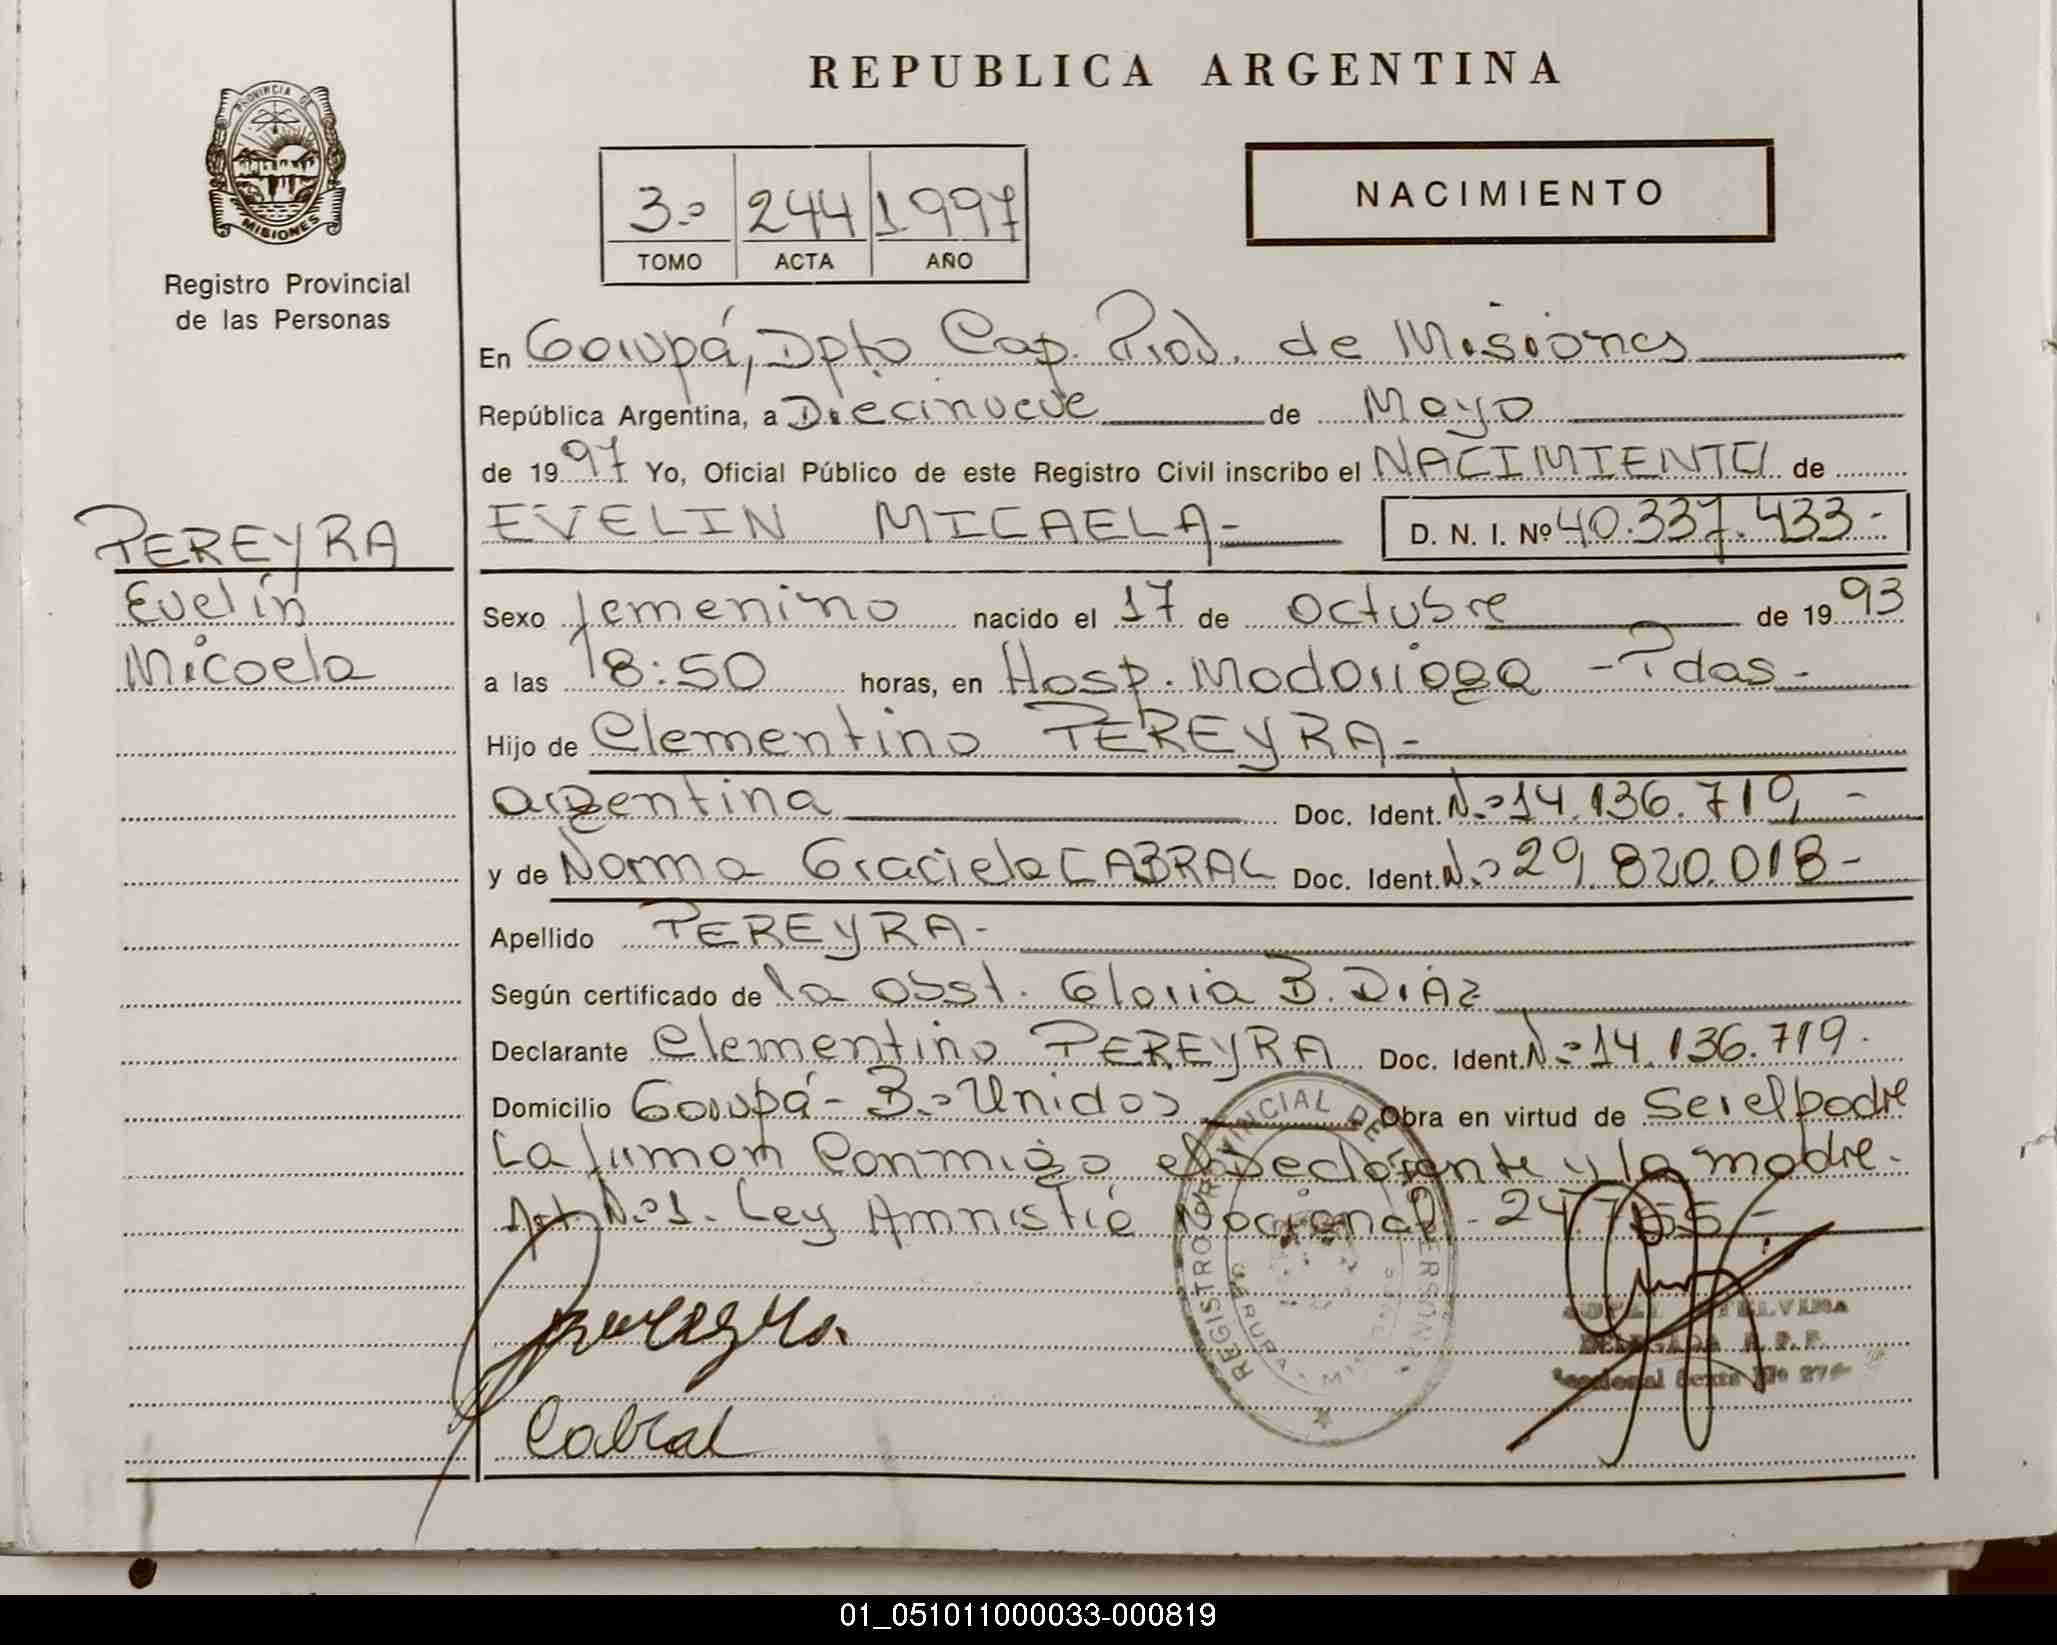 REPUBLICA ARGENTINA
PROVINCIA DE
MISIONES
Registro Provincial
de las Personas
3.º 244 1997
TOMO ACTA AÑO
NACIMIENTO
En Garupá, Dpto Cap. Prov. de Misiones
República Argentina, a Diecinueve de Mayo
de 1997 Yo, Oficial Público de este Registro Civil inscribo el NACIMIENTO de
EVELIN MICAELA- D. N. I. Nº 40.337.433-
PEREYRA
Evelin
Micaela
Sexo femenino nacido el 17 de octubre de 1993
a las 18:50 horas, en Hosp. Madariaga - Pdas-
Hijo de Clementino PEREYRA-
argentina Doc. Ident. N.º 14.136.719, -
y de Norma Graciela CABRAL Doc. Ident. N.º 29.820.018-
Apellido PEREYRA-
Según certificado de la obst. Gloria B. DiAz
Declarante Clementino PEREYRA Doc. Ident. N.º 14.136.719.
Domicilio Garupá- B.º Unidos Obra en virtud de Ser el padre
La firman conmigo el declarante y la madre.
Art. N.º 1. Ley Amnistía Nacional - 24.755-
Pereyra.
Cabral
REGISTRO PROVINCIAL DE LAS PERSONAS
GARUPA
MISIONES
DELEGADA R. P. P.
Seccional Sexta Nº
01_051011000033-000819